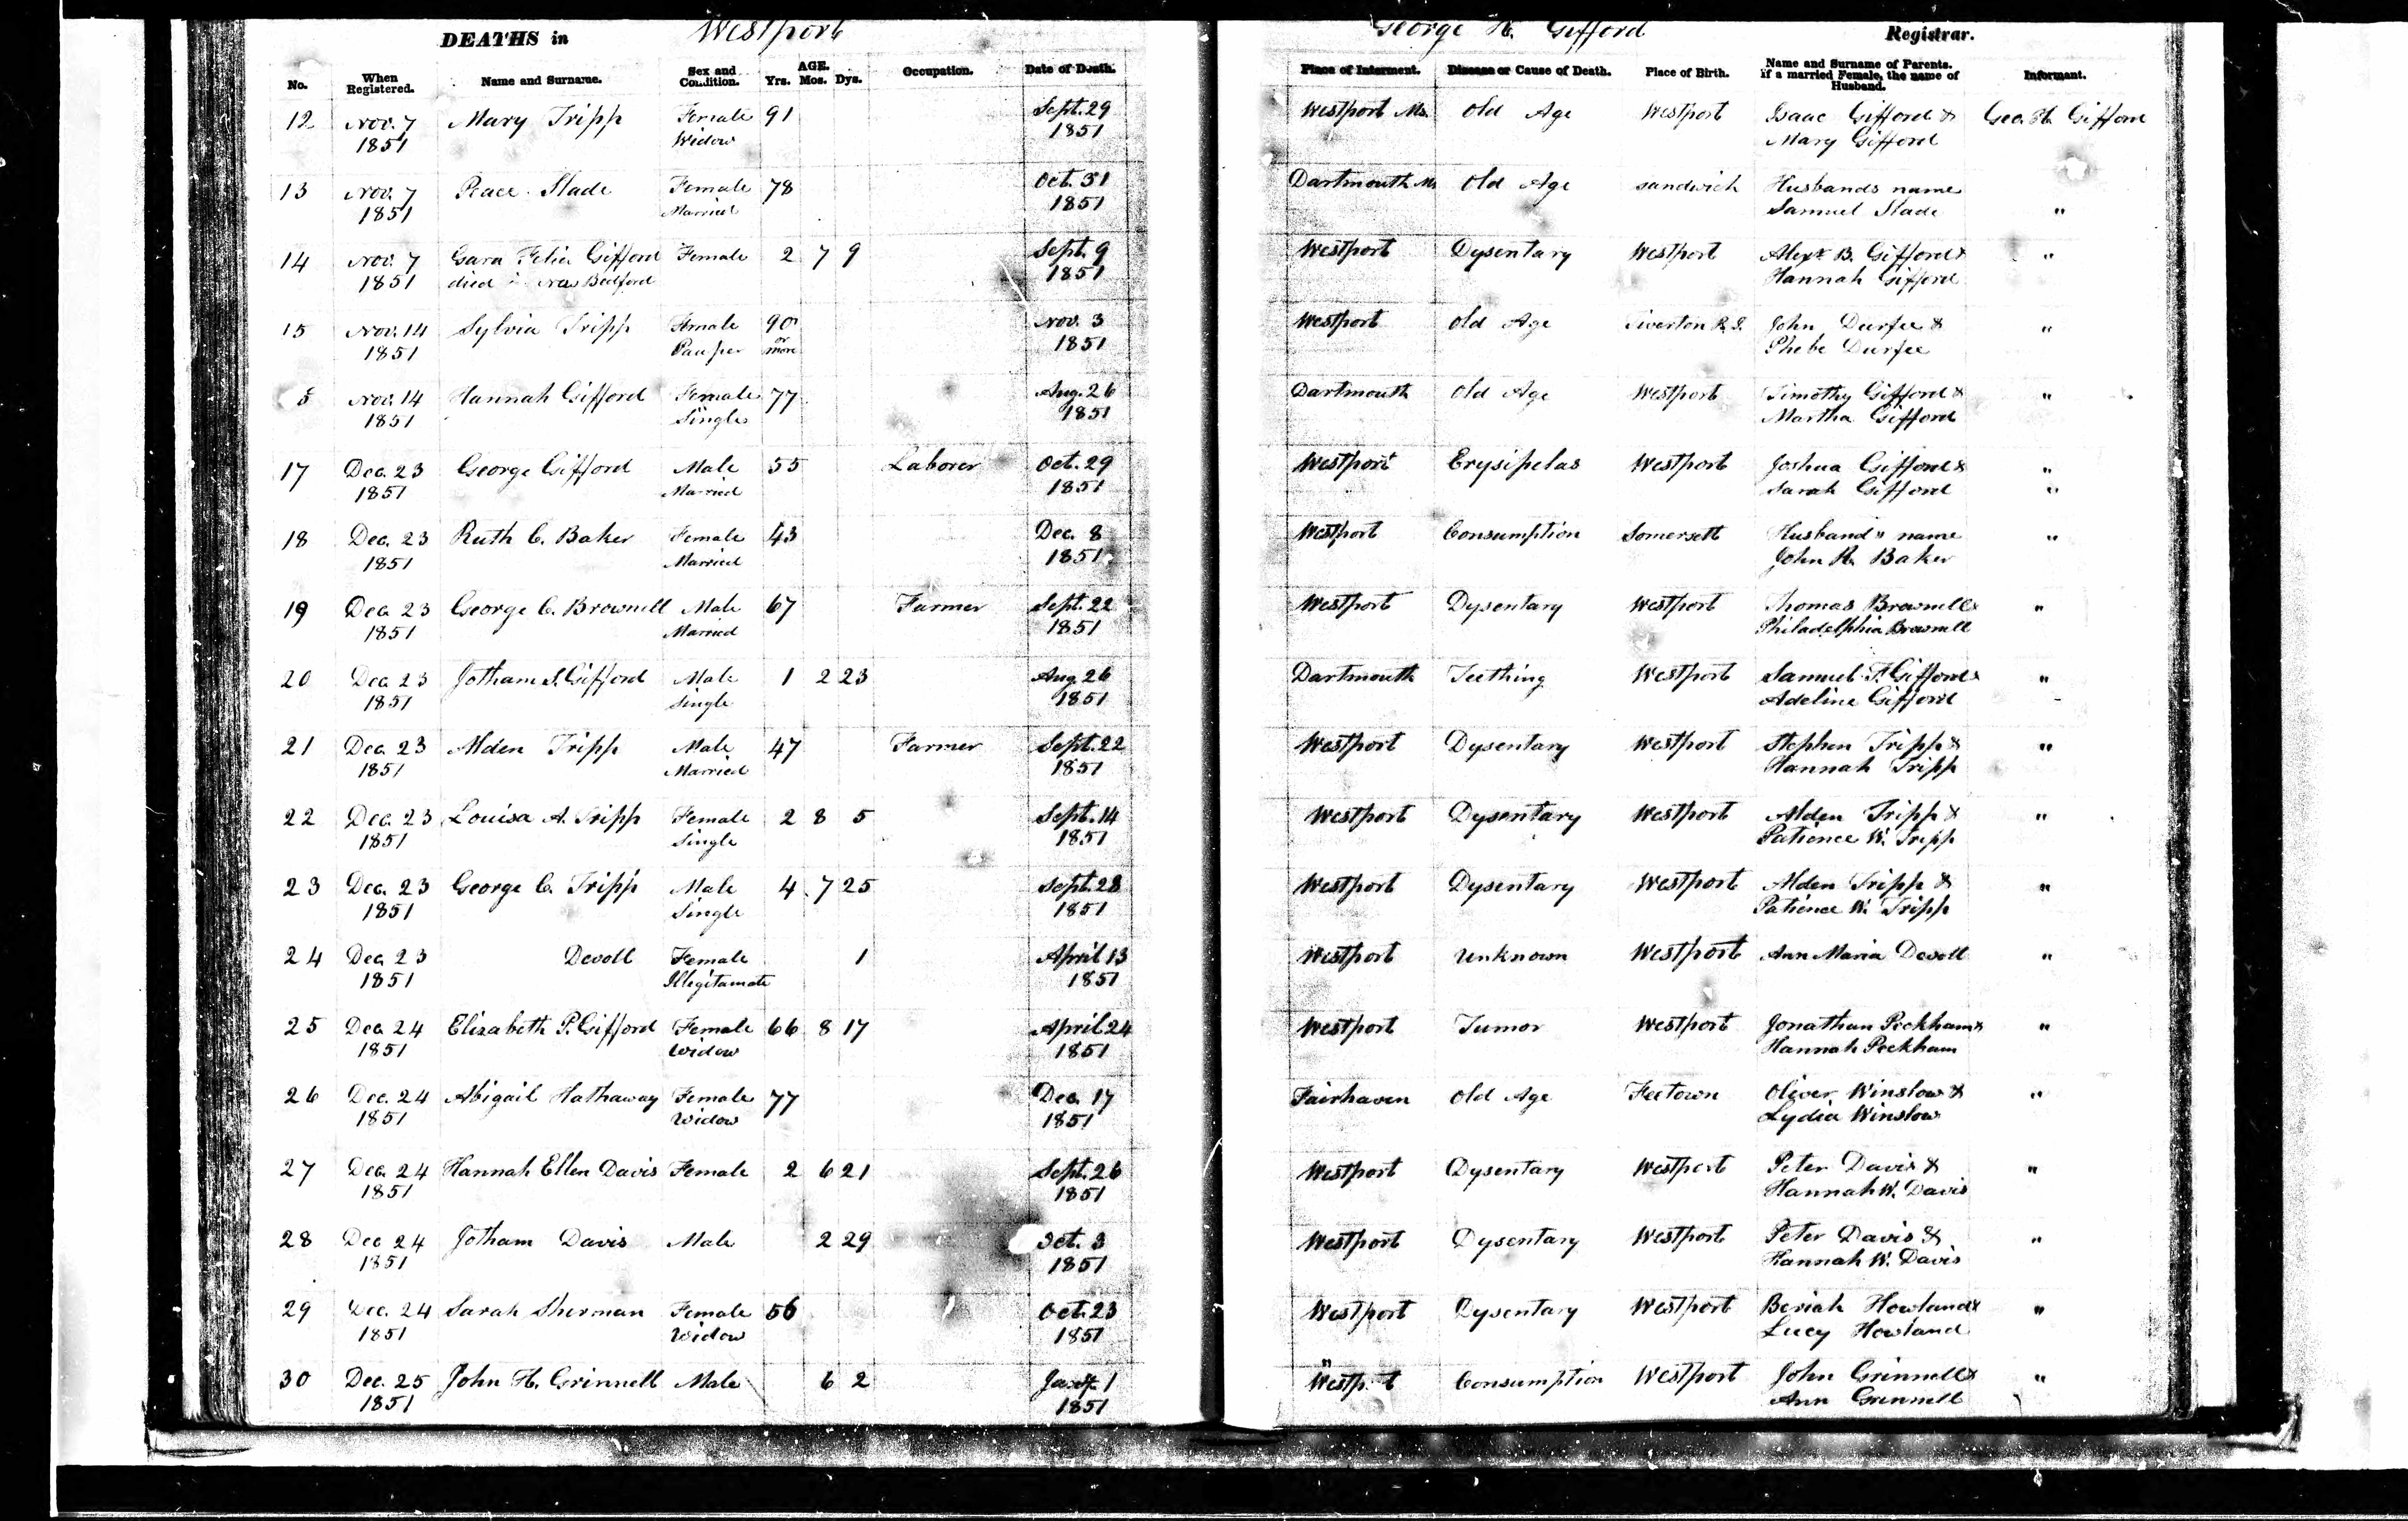 DEATHS in Westport George H. Gifford Registrar.
No. When Registered. Name and Surname. Sex and Condition. AGE. Yrs. Mos. Dys. Occupation. Date of Death. Place of Interment. Disease or Cause of Death. Place of Birth. Name and Surname of Parents. If a married Female, the name of Husband. Informant.
12 Nov. 7 Mary Tripp Female 91 Sept. 29 Westport Ms. Old Age Westport Isaac Gifford & Geo. H. Gifford
1851 Widow 1851 Mary Gifford
13 Nov. 7 Peace Slade Female 78 Oct. 31 Dartmouth Ms Old Age Sandwich Husbands name
1851 Married 1851 Samuel Slade "
14 Nov. 7 Felia Gifford Female 2 7 9 Sept. 9 Westport Dysentary Westport Alexr B. Gifford & "
1851 died in New Bedford 1851 Hannah Gifford
15 Nov. 14 Sylvia Tripp Female 90 Nov. 3 Westport Old Age Tiverton R.I. John Durfee & "
1851 Pauper or more 1851 Phebe Durfee
Nov. 14 Hannah Gifford Female 77 Aug. 26 Dartmouth Old Age Westport Timothy Gifford & "
1851 Single 1851 Martha Gifford
17 Dec. 23 George Gifford Male 55 Laborer Oct. 29 Westport Erysipelas Westport Joshua Gifford & "
1851 Married 1851 Sarah Gifford "
18 Dec. 23 Ruth C. Baker Female 43 Dec. 8 Westport Consumption Somersett Husband's name "
1851 Married 1851 John R. Baker
19 Dec. 23 George C. Brownell Male 67 Farmer Sept. 22 Westport Dysentary Westport Thomas Brownell & "
1851 Married 1851 Philadelphia Brownell
20 Dec. 23 Jotham S. Gifford Male 1 2 23 Aug. 26 Dartmouth Teething Westport Samuel T. Gifford & "
1851 Single 1851 Adeline Gifford
21 Dec. 23 Alden Tripp Male 47 Farmer Sept. 22 Westport Dysentary Westport Stephen Tripp & "
1851 Married 1851 Hannah Tripp
22 Dec. 23 Louisa A. Tripp Female 2 8 5 Sept. 14 Westport Dysentary Westport Alden Tripp & "
1851 Single 1851 Patience W. Tripp
23 Dec. 23 George C. Tripp Male 4 7 25 Sept. 28 Westport Dysentary Westport Alden Tripp & "
1851 Single 1851 Patience W. Tripp
24 Dec. 23 Devoll Female 1 April 13 Westport Unknown Westport Ann Maria Devoll "
1851 Illegitamate 1851
25 Dec. 24 Elizabeth P. Gifford Female 66 8 17 April 24 Westport Tumor Westport Jonathan Peckham & "
1851 Widow 1851 Hannah Peckham
26 Dec. 24 Abigail Hathaway Female 77 Dec. 17 Fairhaven Old Age Feetown Oliver Winslow & "
1851 Widow 1851 Lydia Winslow
27 Dec. 24 Hannah Ellen Davis Female 2 6 21 Sept. 26 Westport Dysentary Westport Peter Davis & "
1851 1851 Hannah W. Davis
28 Dec 24 Jotham Davis Male 2 29 Oct. 3 Westport Dysentary Westport Peter Davis & "
1851 1851 Hannah W. Davis
29 Dec. 24 Sarah Sherman Female 56 Oct. 23 Westport Dysentary Westport Beriah Howland & "
1851 Widow 1851 Lucy Howland
30 Dec. 25 John H. Grinnell Male 6 2 Jany. 1 Westport Consumption Westport John Grinnell & "
1851 1851 Ann Grinnell